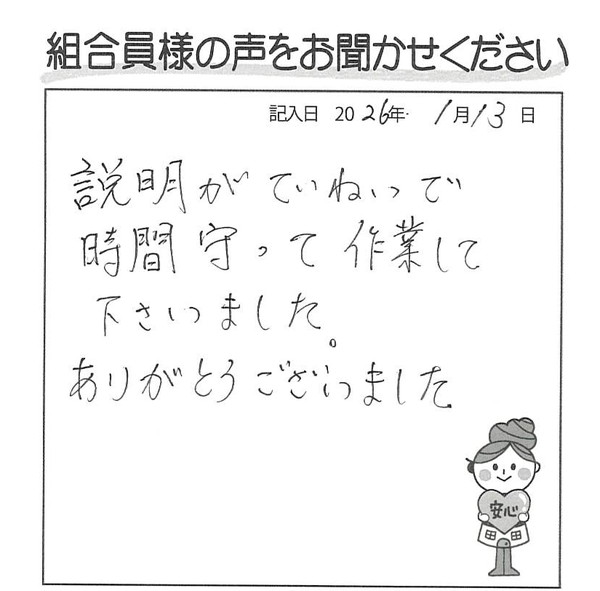 組合員様の声をお聞かせください
記入日 2026年 1月13日
説明がていねいで
時間守って作業して
下さいました。
ありがとうございました
安心